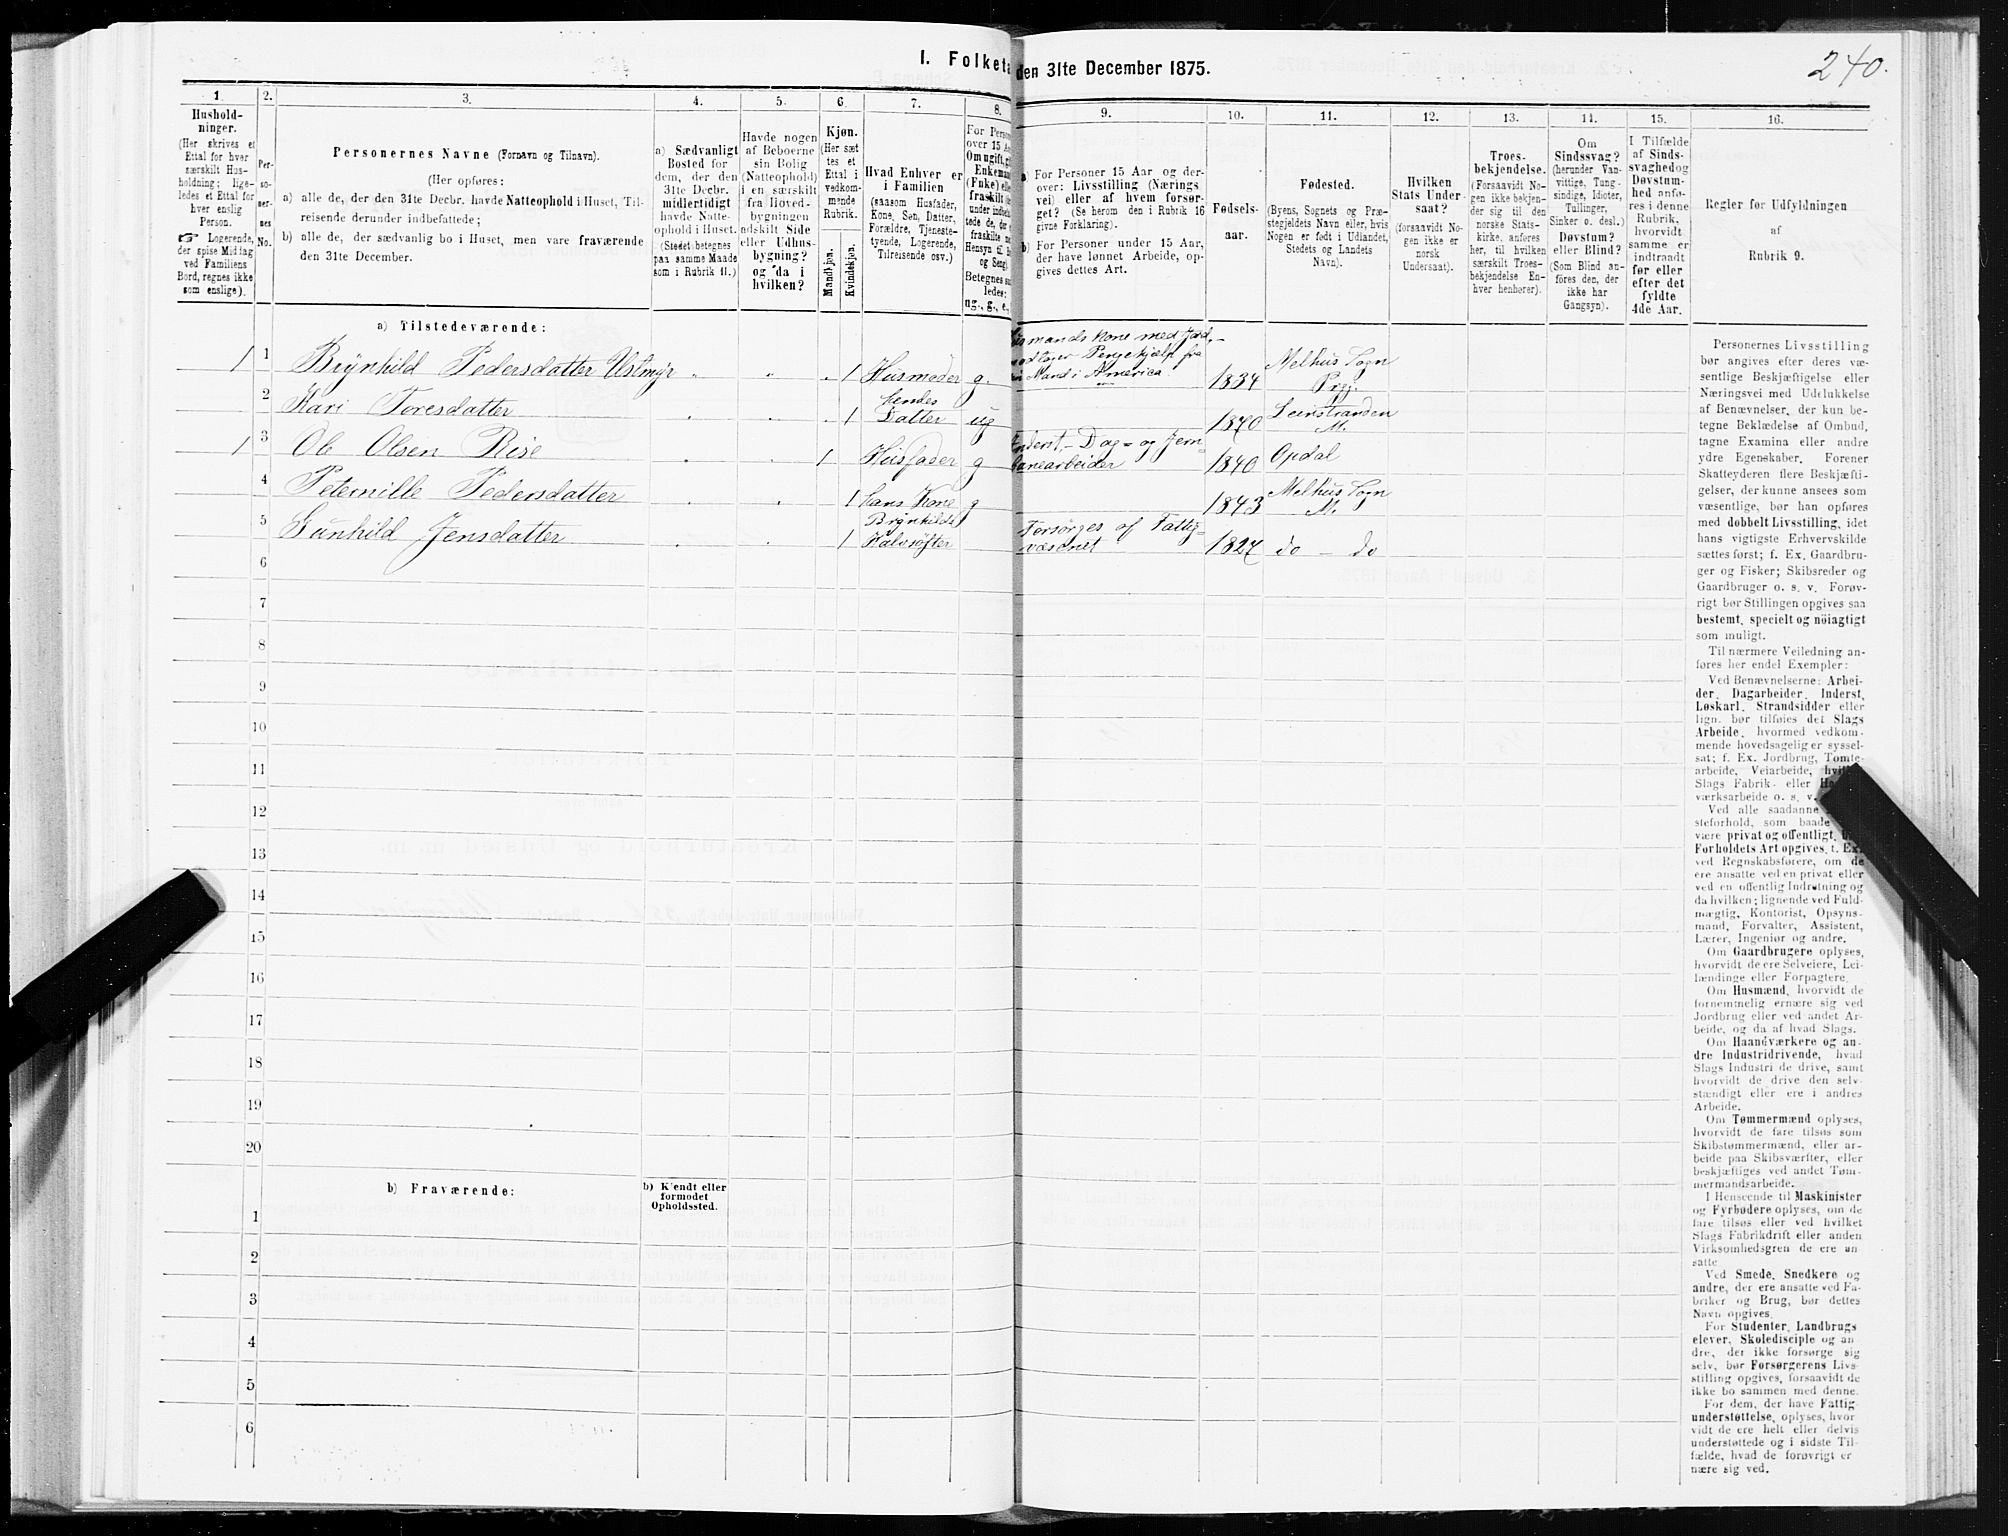 I. Folketæ den 31te December 1875.
240.
1. 2. 3. 4. 5. 6. 7. 8. 9. 10. 11. 12. 13. 14. 15. 16.
Hushold-
ninger.
(Her skrives et
Ettal for hver
særskilt Hus-
holdning; lige-
ledes et Ettal for
hver enslig
Person.
☞ Logerende,
der spise Middag
ved Familiens
Bord, regnes ikke
som enslige).
Per-
so-
ner-
nes
No.
Personernes Navne (Fornavn og Tilnavn).
(Her opføres:
a) alle de, der den 31te Decbr. havde Natteophold i Huset, Til-
reisende derunder indbefattede;
b) alle de, der sædvanlig bo i Huset, men vare fraværende
den 31te December.
a) Sædvanligt
Bosted for
dem, der den
31te Decbr.
midlertidigt
havde Natte-
ophold i Huset.
(Stedet betegnes
paa samme Maade
som i Rubrik 11.)
Havde nogen
af Beboerne
sin Bolig
(Natteophold)
i en særskilt
fra Hoved-
bygningen
adskilt Side
eller Udhus-
bygning?
og da i
hvilken?
Kjøn.
(Her sæt
tes et
Ettal i
vedkom-
mende
Rubrik.
Mandkjøn.
Kvindekjøn.
Hvad Enhver er
i Familien
(saasom Husfader,
Kone, Søn, Datter,
Forældre, Tjeneste-
tyende, Logerende,
Tilreisende osv.)
For Perso
over 15 Aa
Om ugift, gi
Enkeman
(Fuke) elle
fraskilt
under indbe
tede de, der
fraskilte
Hensyn til
og Seng)
Betegnes sa
ledes:
ug., g., e.,
a) For Personer 15 Aar og der-
over: Livsstilling (Nærings
vei) eller af hvem forsør-
get? (Se herom den i Rubrik 16
givne Forklaring).
b) For Personer under 15 Aar,
der have lønnet Arbeide, op-
gives dettes Art.
Fødsels-
aar.
Fødested.
(Byens, Sognets og Præ-
stegjeldets Navn eller, hvis
Nogen er født i Udlandet,
Stedets og Landets
Navn).
Hvilken
Stats Under-
saat?
(forsaavidt No-
gen ikke er
norsk
Undersaat).
Troes-
bekjendelse.
(Forsaavidt No-
gen ikke bekjen-
der sig til den
norske Stats-
kirke, anføres
her, til hvilken
særskilt Troes-
bekjendelse En-
hver henhører).
Om
Sindssvag?
(herunder Van-
vittige, Tung-
sindige, Idioter,
Tullinger,
Sinker o. desl.)
Døvstum?
eller Blind?
(Som Blind an-
føres den, der
ikke har
Gangsyn).
I Tilfælde
af Sinds-
svaghed og
Døvstum-
hed anfø-
res i denne
Rubrik,
hvorvidt
samme er
indtraadt
før eller
efter det
fyldte
4de Aar.
Regler for Udfyldningen
af
Rubrik 9.
a) Tilstedeværende:
1 1 Brynhild Pedersdatter Ustmyr 1 Husmoder g. smands Kone med Jord, modtager Pengehjælp fra sin Mand i America 1834 Melhus Sogn Prgj.
2 Kari Toresdatter 1 hendes Datter ug 1870 Leinstranden M.
1 3 Ole Olsen Rise 1 Husfader g Inderst, Dag- og Jernbanearbeider 1840 Opdal
4 Peternille Pedersdatter 1 hans Kone g 1843 Melhus Sogn M.
5 Gunhild Jensdatter 1 Brynhilds Halvsøster Forsørges af Fattig=væsenet 1827 do - do
6
7
8
9
10
11
12
13
14
15
16
17
18
19
20
b) Fraværende:
b) Kjendt eller
formodet
Opholdssted.
1
2
3
4
5
6
Personernes Livsstilling
bør angives efter deres væ-
sentlige Beskjæftigelse eller
Næringsvei med Udelukkelse
af Benævnelser, der kun be-
tegne Beklædelse af Ombud,
tagne Examina eller andre
ydre Egenskaber. Forener
Skatteyderen flere Beskjæfti-
gelser, der kunne ansees som
væsentlige, bør han opføres
med dobbelt Livsstilling, idet
hans vigtigste Erhvervskilde
sættes først; f. Ex. Gaardbru-
ger og Fisker; Skibsreder og
Gaardbruger o. s. v. Forøv-
rigt bør Stillingen opgives saa
bestemt, specielt og nöiagtigt
som muligt.
Til nærmere Veiledning an-
føres her endel Exempler:
Ved Benævnelserne: Arbei-
der, Dagarbeider, Inderst,
Løskarl, Strandsidder eller
lign. bør tilføies det Slags
Arbeide, hvormed vedkom-
mende hovedsagelig er syssel-
sat; f. Ex. Jordbrug, Tomte-
arbeide, Veiarbeide, hvil
Slags Fabrik- eller Ha
værksarbeide o. s. v.
Ved alle saadanne
steforhold, som baade
være privat og offentligt,
Forholdets Art opgives, t. Ex.
ved Regnskabsførere, om de
ere ansatte ved en privat eller
ved en offentlig Indretning og
da hvilken; lignende ved Fuld-
mægtig, Kontorist, Opsyns-
mand, Forvalter, Assistent,
Lærer, Ingeniør og andre.
Om Gaardbrugere oplyses,
hvorvidt de ere Selveiere, Lei-
lændinge eller Forpagtere.
Om Husmænd, hvorvidt de
fornemmelig ernære sig ved
Jordbrug eller ved andet Ar-
beide, og da af hvad Slags.
Om Haandværkere og an-
dre Industridrivende, hvad
Slags Industri de drive, samt
hvorvidt de drive den selv-
stændigt eller ere i andres
Arbeide.
Om Tømmermænd oplyses,
hvorvidt de fare tilsøs som
Skibstømmermænd, eller ar-
beide paa Skibsværfter, eller
beskjæftiges ved andet Tøm-
mermandsarbeide.
I Henseende til Maskinister
og Fyrbødere oplyses, om de
fare tilsøs eller ved hvilket
Slags Fabrikdrift eller anden
Virksomhedsgren de ere an
satte
Ved Smede, Snedkere og
andre, der ere ansatte ved Fa-
briker og Brug, bør dettes
Navn opgives.
For Studenter, Landbrugs
elever, Skoledisciple og an
dre, der ikke forsørge sig
selv, bør Forsørgerens Livs-
stilling opgives, forsaavidt de
ikke bo sammen med denne.
For dem, der have Fattig-
understøttelse, oplyses, hvor
vidt de ere helt eller delvis
understøttede og i sidste Til-
fælde, hvad de forøvrigt er
nære sig ved.